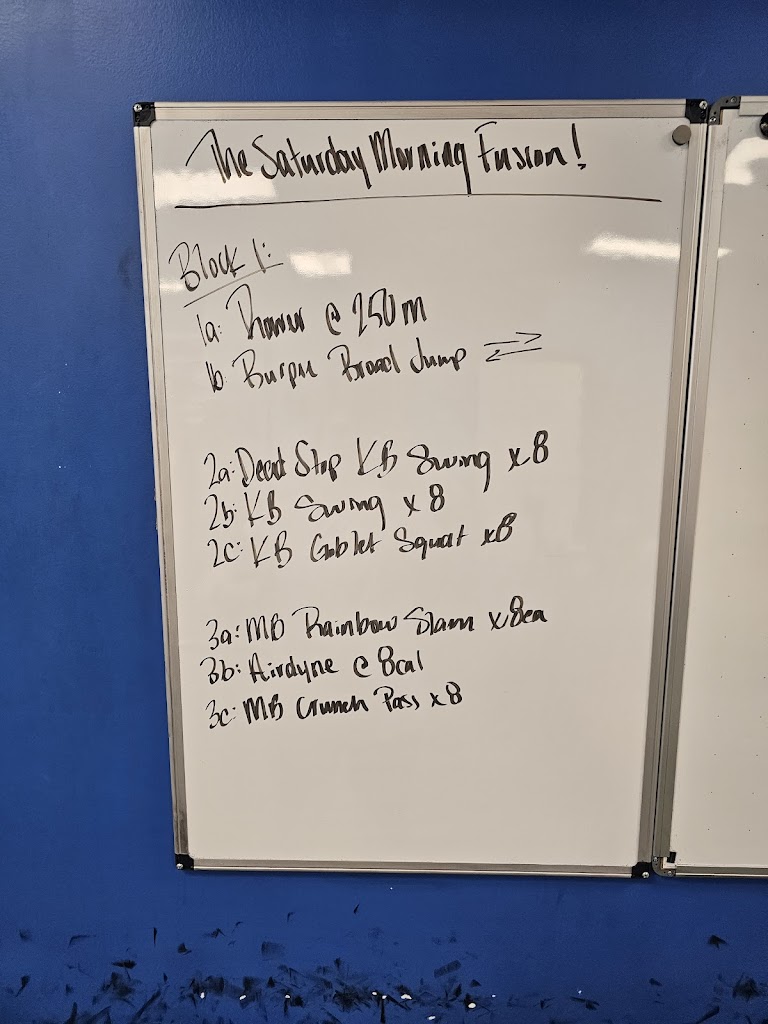 The Saturday Morning Fusion!
Block 1:
1a: Rower @ 250m
1b: Burpee Broad Jump ⇄
2a: Dead Stop KB Swing x8
2b: KB Swing x 8
2c: KB Goblet Squat x8
3a: MB Rainbow Slam x8ea
3b: Airdyne @ 8cal
3c: MB Crunch Pass x8